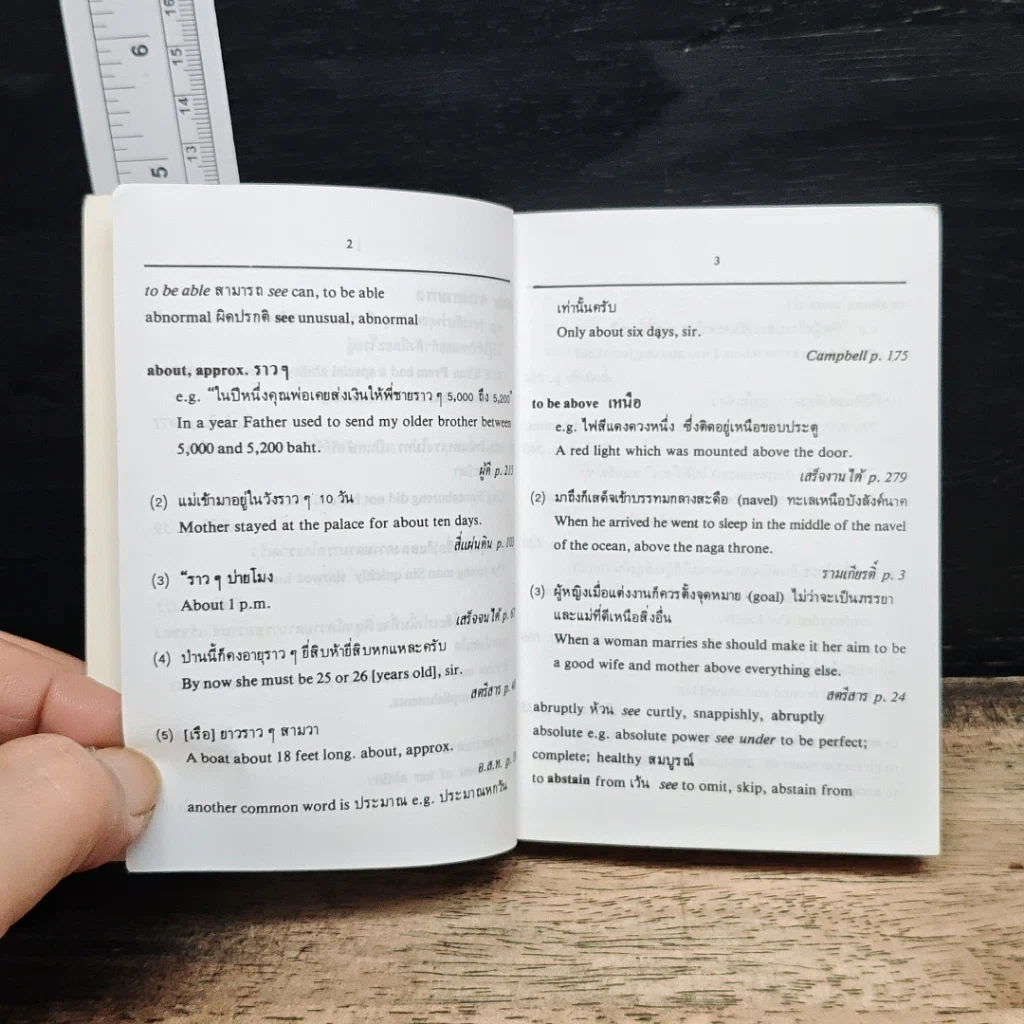 6
5
16
15
14
13
2
to be able สามารถ see can, to be able
abnormal ผิดปรกติ see unusual, abnormal
about, approx. ราวๆ
e.g. "ในปีหนึ่งคุณพ่อเคยส่งเงินให้พี่ชายราว ๆ 5,000 ถึง 5,200"
In a year Father used to send my older brother between
5,000 and 5,200 baht.
ผู้ดี p. 215
(2) แม่เข้ามาอยู่ในวังราว ๆ 10 วัน
Mother stayed at the palace for about ten days.
สี่แผ่นดิน p. 103
(3) "ราว ๆ บ่ายโมง
About 1 p.m.
เสร็จจนได้ p.
(4) ป่านนี้ก็คงอายุราว ๆ ยี่สิบห้ายี่สิบหกแหละครับ
By now she must be 25 or 26 [years old], sir.
สตรีสาร p.
(5) [เรือ] ยาวราว ๆ สามวา
A boat about 18 feet long. about, approx.
อ.ส.ท. p.
another common word is ประมาณ e.g. ประมาณหกวัน
3
เท่านั้นครับ
Only about six days, sir.
Campbell p. 175
to be above เหนือ
e.g. ไฟสีแดงดวงหนึ่ง ซึ่งติดอยู่เหนือขอบประตู
A red light which was mounted above the door.
เสร็จงานได้ p. 279
(2) มาถึงก็เสด็จเข้าบรรทมกลางสะดือ (navel) ทะเลเหนือบังลังค์นาค
When he arrived he went to sleep in the middle of the navel
of the ocean, above the naga throne.
รามเกียรติ์ p. 3
(3) ผู้หญิงเมื่อแต่งงานก็ควรตั้งจุดหมาย (goal) ไม่ว่าจะเป็นภรรยา
และแม่ที่ดีเหนือสิ่งอื่น
When a woman marries she should make it her aim to be
a good wife and mother above everything else.
สตรีสาร p. 24
abruptly ห้วน see curtly, snappishly, abruptly
absolute e.g. absolute power see under to be perfect;
complete; healthy สมบูรณ์
to abstain from เว้น see to omit, skip, abstain from